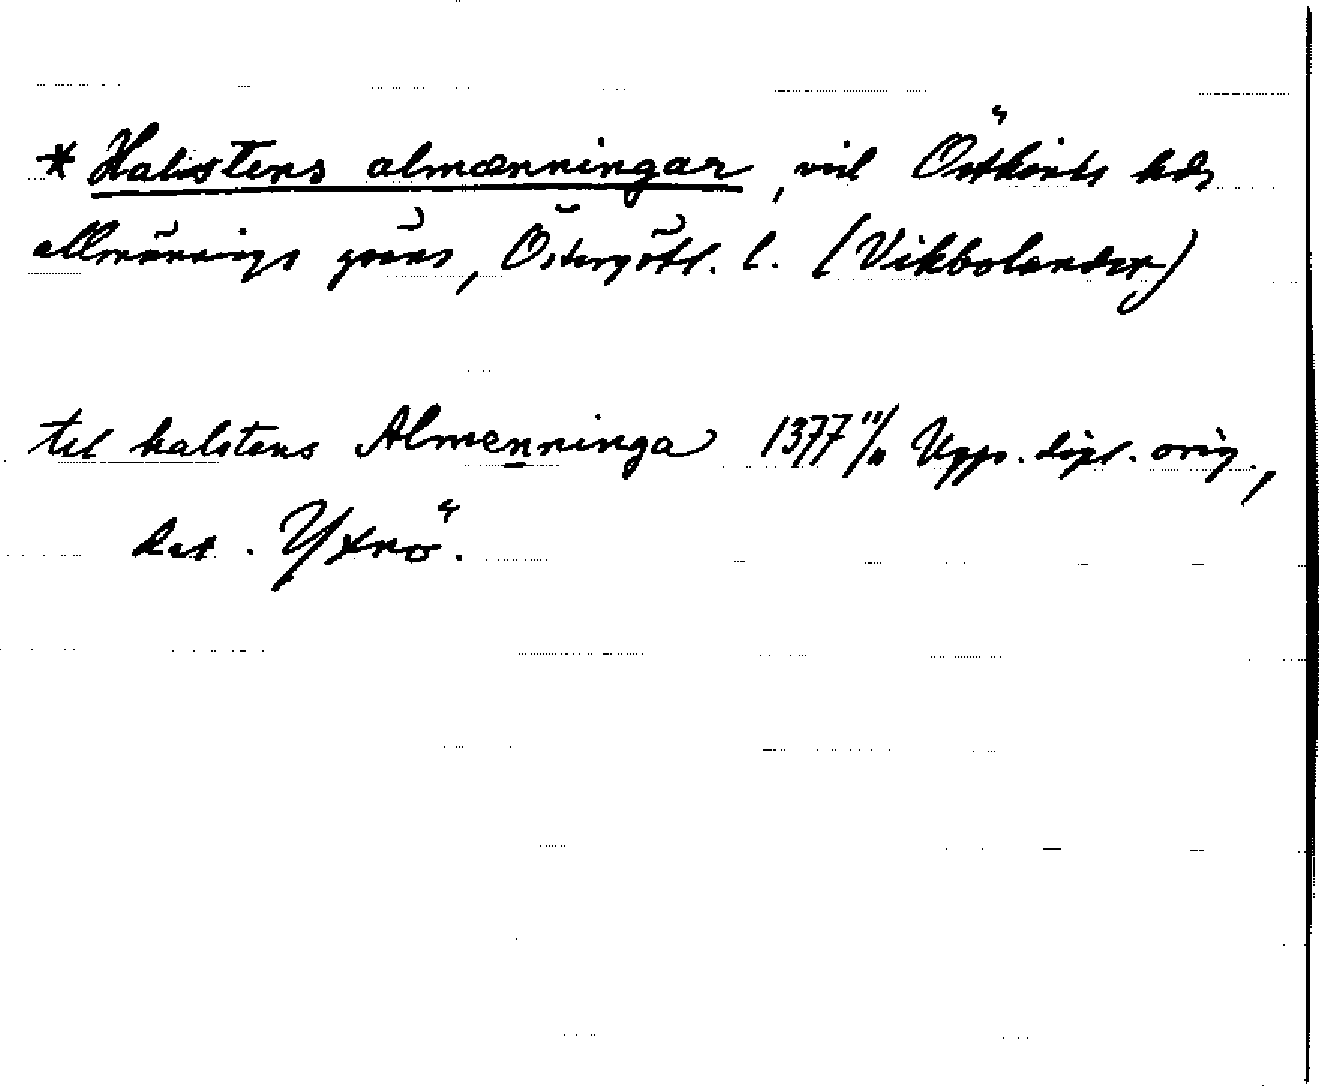 * Halstens almænningar, vid Östkinds hds
allmännings gräns, Östergötl. l. (Vikbolandet)
til halstens Almenninga 1377 11/11 Upps. dipl. orig.,
Ret. Yxnö.